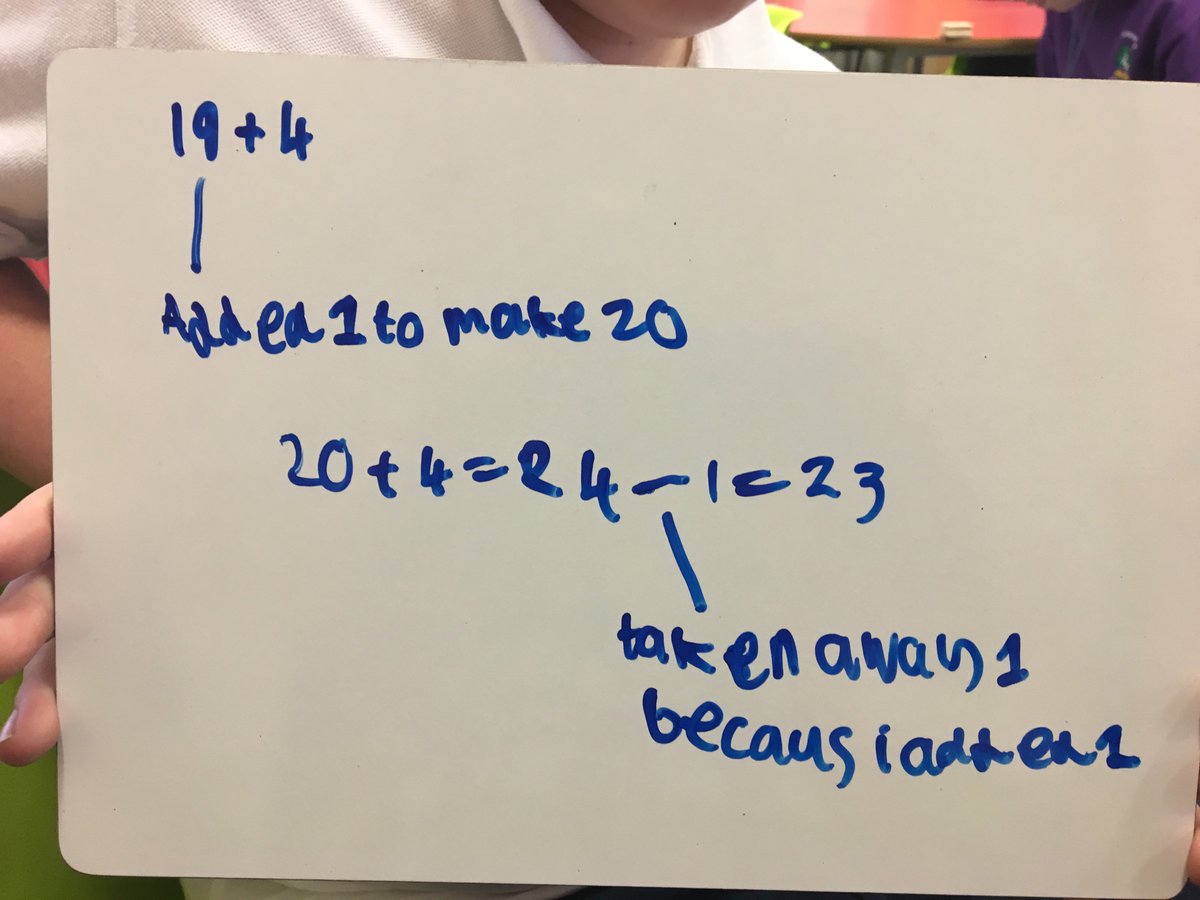 19+4
Added 1 to make 20
20+4=24-1=23
taken away 1
becaus i added 1